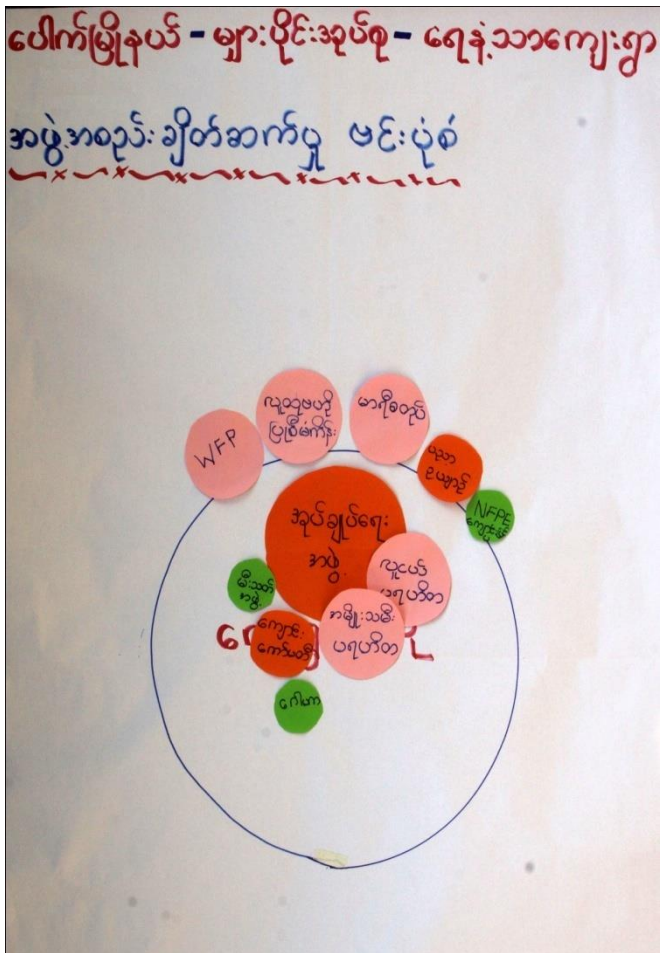 ပေါက်မြို့နယ် - မျှားပိုင်းအုပ်စု - ရေနံ့သာကျေးရွာ
အဖွဲ့အစည်းချိတ်ဆက်မှု ဗင်းပုံစံ
WFP
လူထုဗဟို
ပြုစီမံကိန်း
မာရီစတုပ်
ပညာ
ဥယျာဉ်
NFPE
အုပ်ချုပ်ရေး
အဖွဲ့
လူငယ်
ပရဟိတ
မီးသတ်
အဖွဲ့
ကျောင်း
ကော်မတီ
အမျိုးသမီး
ပရဟိတ
ဂေါပက